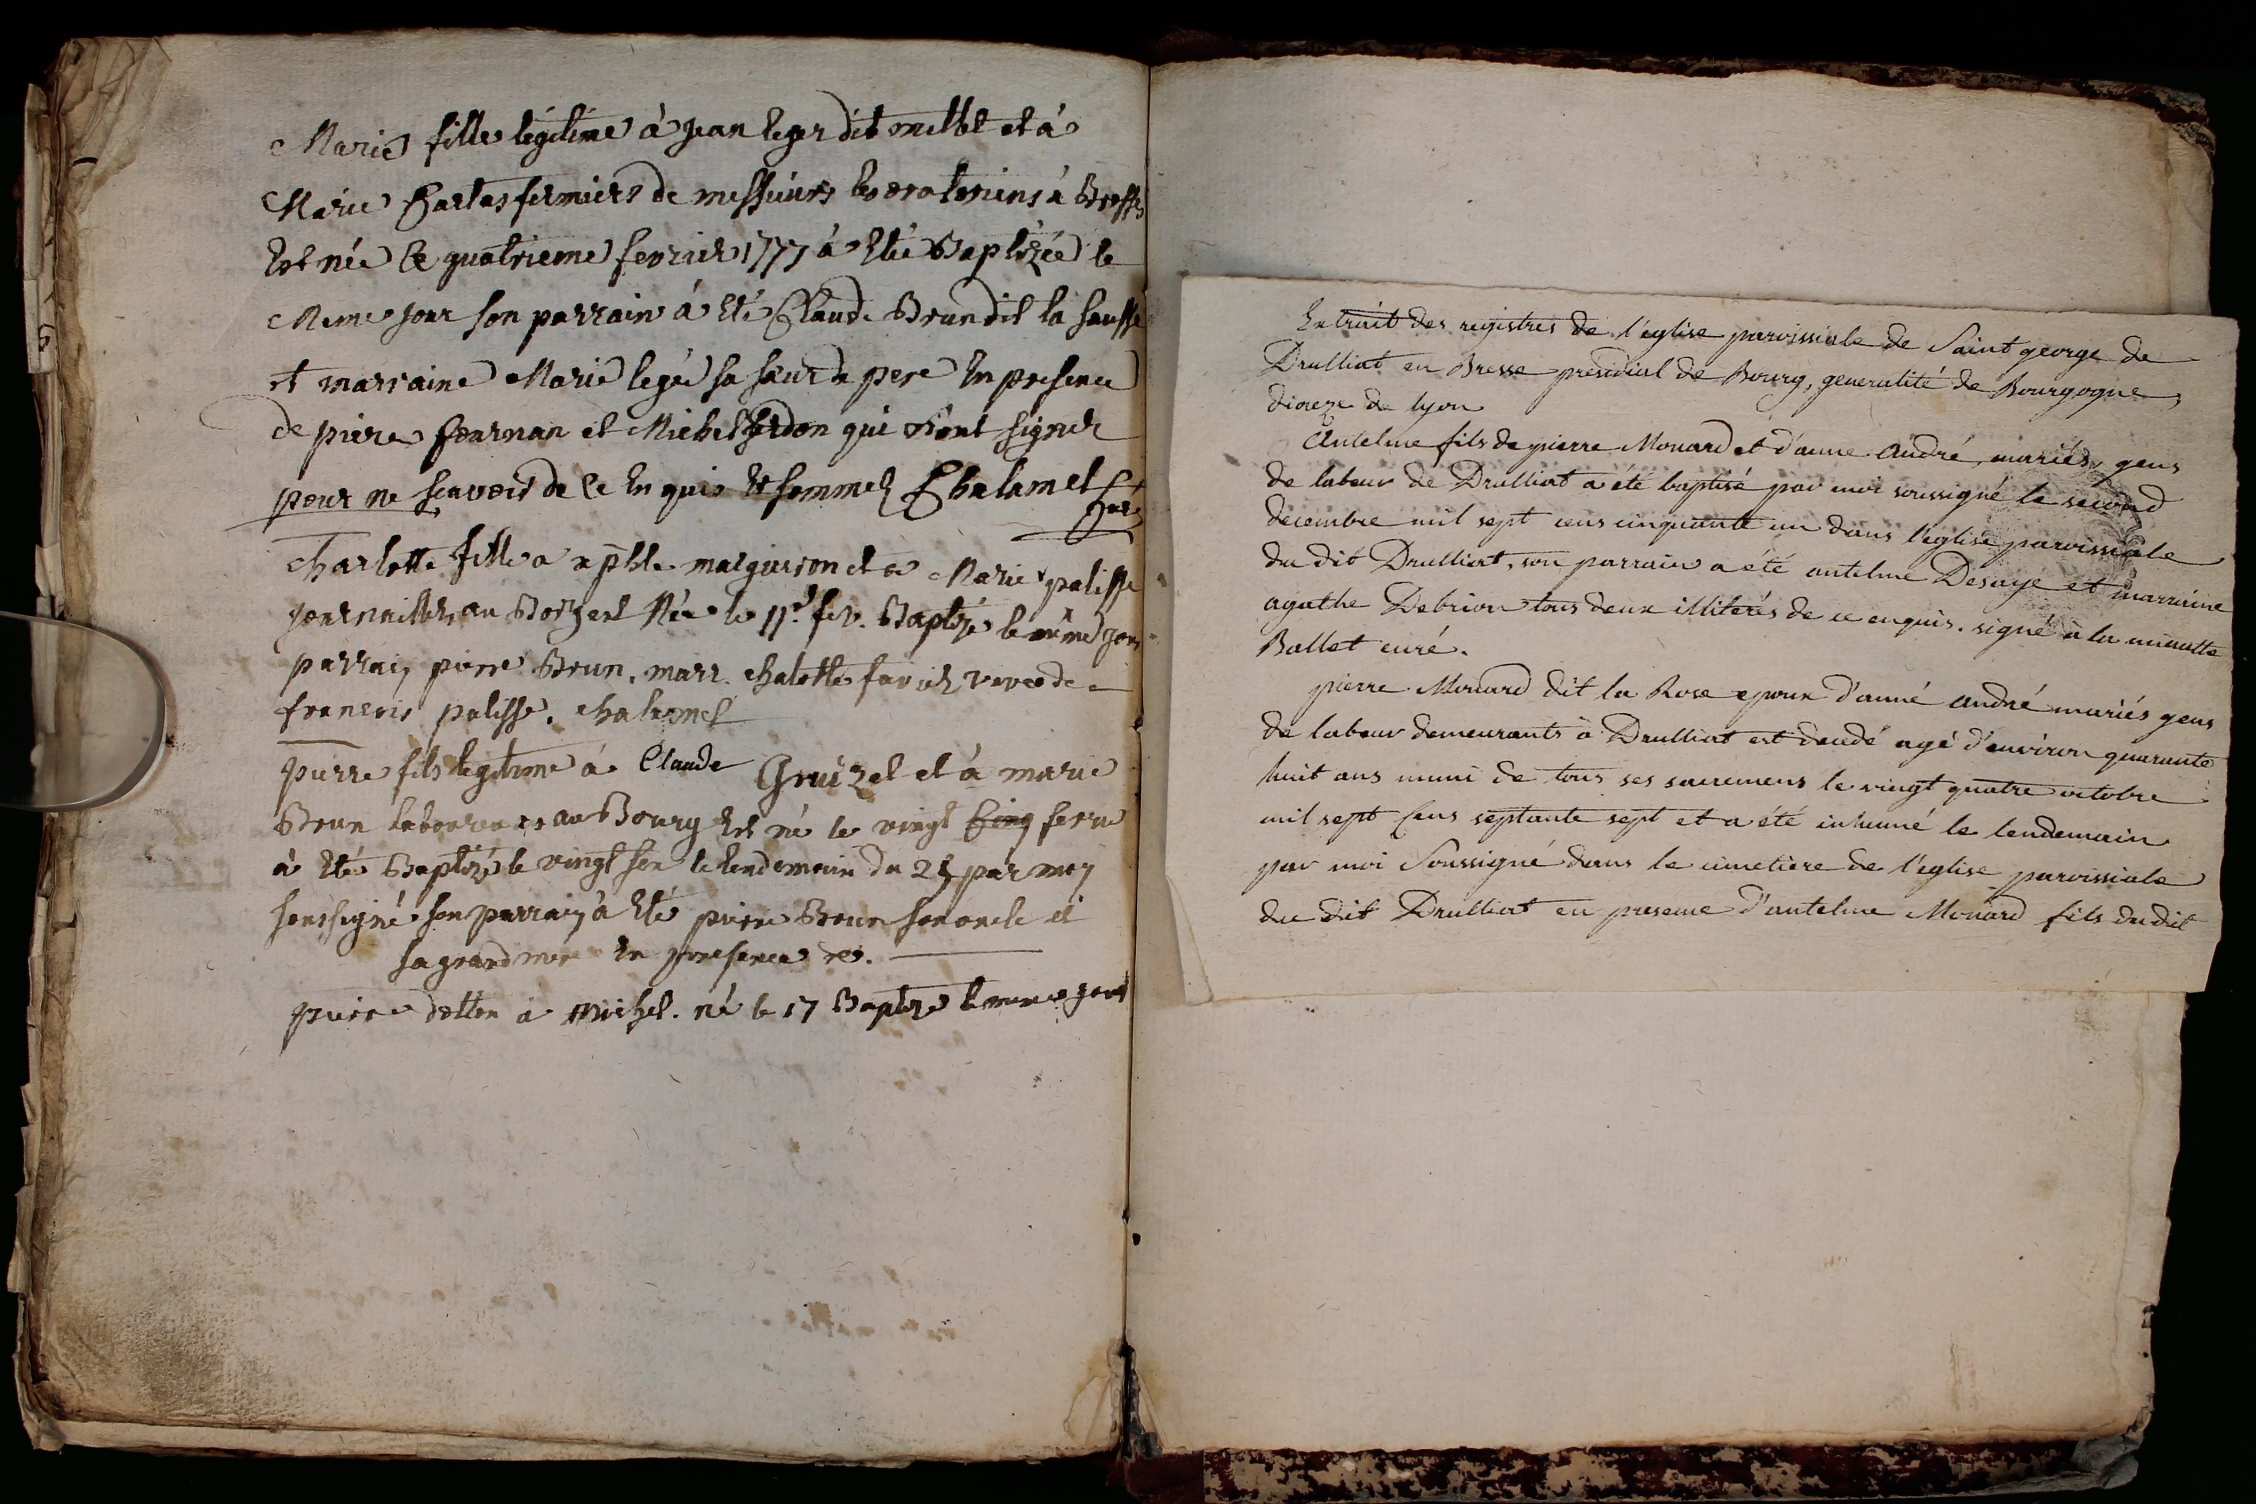 Marie fille legitime à Jean leger dit millet et à
Marie fermiers de messieurs les oratoriens à
est née le quatrieme fevrier 1777 à eté Baptizée le
meme jour son parrain à eté Claude Brun dit la
et marraine Marie legé sa sœur de pere en presence
de pierre fournan et Michel qui n'ont signer
pour ne scavoir de ce enquis et sommez Chalamel Curé
Charlotte fille a xphle malguison et a Marie palisse
journallier au Née le 11e fev. Baptizé le même jour
parrain pierre Brun, marr. chalotte favier veve de
francois palisse. chalamel
pierre fils legitime à Claude Gruizel et à marie
Brun laboureurs au Bourg est né le vingt cinq fevrie
à eté Baptizé le vingt six le lendemain du 25 par moy
soussigné son parrain à eté pierre Brun son oncle et
sa grand mere en presence de.
pierre à Michel. né le 17 Baptizé le meme jour
Extrait des registres de l'église paroissiale de Saint george de
Drulliat en Bresse présidial de Bourg, generalité de Bourgogne,
diocèze de lyon
Antelme fils de pierre Monard et d'anne André, mariés, gens
de labeur de Drulliat a été baptisé par moi soussigné le second
decembre mil sept cens cinquante un dans l'église paroissiale
du dit Drulliat, son parrain a été antelme Desaye et marraine
agathe Debrion tous deux illiterés de ce enquis. signé à la minutte
Ballet curé.
pierre Monard dit la Rose epoux d'anné andré mariés gens
de labeur demeurants à Drulliat est décédé agé d'environ quarante
huit ans muni de tous ses sacremens le vingt quatre octobre
mil sept Cens septante sept et a été inhumé le lendemain
par moi Soussigné dans le cimetière de l'église paroissiale
du dit Drulliat en presence d'antelme Monard fils du dit